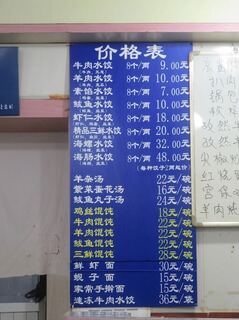 价格表
牛肉水饺 8个/两 9.00元
羊肉水饺 8个/两 10.00元
素馅水饺 8个/两 7.00元
鲅鱼水饺 8个/两 10.00元
虾仁水饺 8个/两 18.00元
精品三鲜水饺 8个/两 20.00元
海螺水饺 8个/两 32.00元
海肠水饺 8个/两 48.00元
羊杂汤 22元/碗
紫菜蛋花汤 16元/碗
鲅鱼丸子汤 24元/碗
鸡丝馄饨 18元/碗
牛肉馄饨 21元/碗
羊肉馄饨 22元/碗
鲅鱼馄饨 22元/碗
三鲜馄饨 28元/碗
鲜虾面 30元/碗
蚬子面 15元/碗
家常手擀面 15元/碗
速冻牛肉水饺 36元/袋
扒肉
锅包
孜然
尖椒
红烧
宫保
羊肉炖